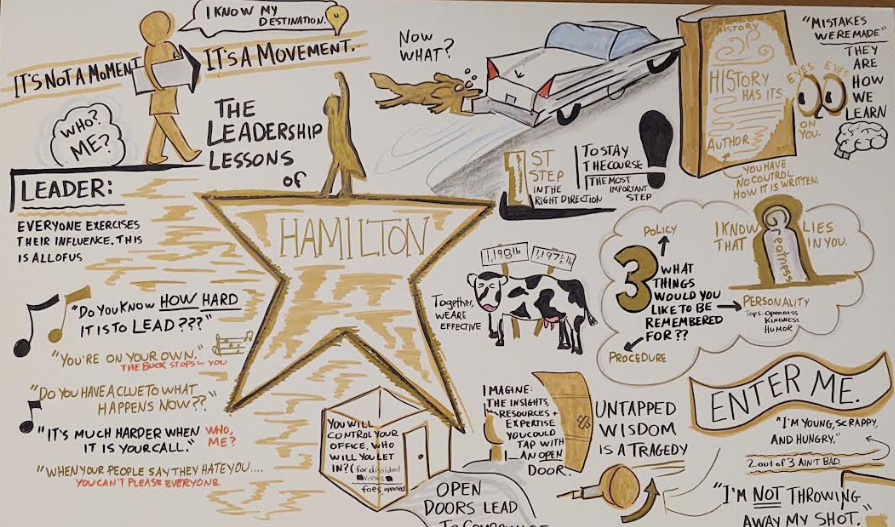 I KNOW MY
DESTINATION.
IT'S NOT A MOMENT
IT'S A MOVEMENT.
WHO?
ME?
THE
LEADERSHIP
LESSONS
OF
HAMILTON
LEADER:
EVERYONE EXERCISES
THEIR INFLUENCE. THIS
IS ALL OF US
"DO YOU KNOW HOW HARD
IT IS TO LEAD???"
"YOU'RE ON YOUR OWN."
THE BUCK STOPS W YOU
"DO YOU HAVE A CLUE TO WHAT
HAPPENS NOW??"
"IT'S MUCH HARDER WHEN
IT IS YOUR CALL."
WHO,
ME?
"WHEN YOUR PEOPLE SAY THEY HATE YOU....
YOU CAN'T PLEASE EVERYONE.
NOW
WHAT?
1ST
STEP
IN THE
RIGHT DIRECTION
TO STAY
THE COURSE
THE MOST
IMPORTANT
STEP
HISTORY
HISTORY
HAS ITS
EYES
EYES
ON
YOU.
AUTHOR
YOU HAVE
NO CONTROL
HOW IT IS WRITTEN.
"MISTAKES
WERE MADE"
THEY
ARE
HOW
WE
LEARN
1,198 lb
1,197½ lb
Together,
WE ARE
EFFECTIVE
POLICY
3 WHAT
THINGS
WOULD YOU
LIKE TO BE
REMEMBERED
FOR??
PROCEDURE
PERSONALITY
Tops: openness
KINDNESS
HUMOR
I KNOW
THAT
Greatness
LIES
IN YOU.
YOU WILL
CONTROL YOUR
OFFICE, WHO
WILL YOU LET
IN? (for dissident
views
foes,
OPEN
DOORS LEAD
TO
IMAGINE:
THE INSIGHTS,
RESOURCES +
EXPERTISE
YOU COULD
TAP WITH
AN OPEN
DOOR.
UNTAPPED
WISDOM
IS A TRAGEDY
ENTER ME.
"I'M YOUNG, SCRAPPY,
AND HUNGRY."
2 out of 3 AIN'T BAD
"I'M NOT THROWING
AWAY MY SHOT."